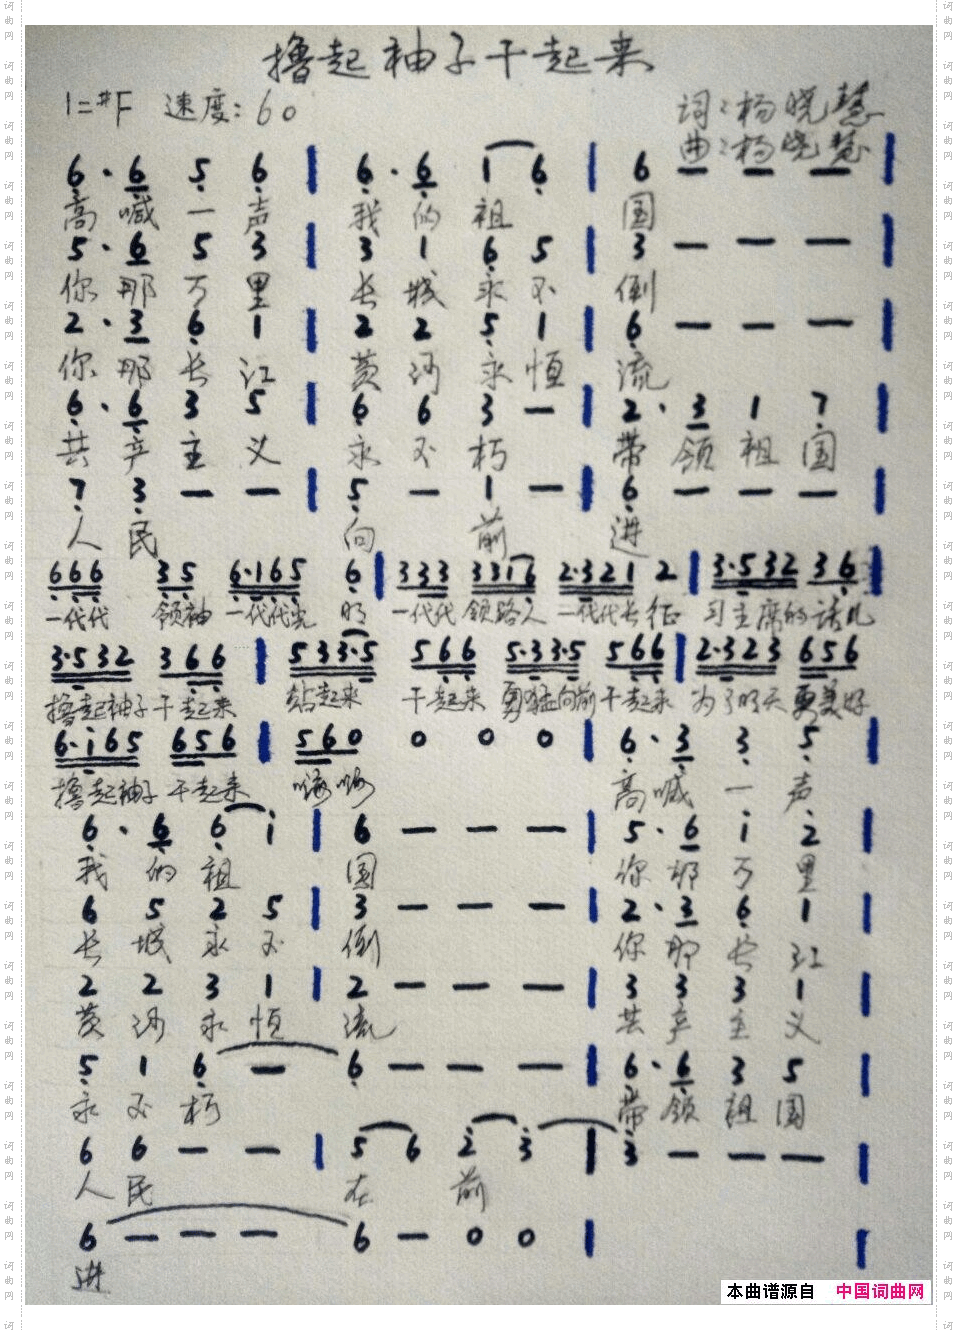 撸起袖子干起来
1=#F 速度:60
词:杨晓慧
曲:杨晓慧
6·6 5 6 | 6·6 1 6 | 6 — — — |
高喊一声 我的祖 国
5·6 5 3 | 3 1 6 5 | 3 — — — |
你那万里 长城永不 倒
2·3 6 1 | 2 2 5 1 | 6 — — — |
你那长江 黄河永恒 流
6·6 3 5 | 6 6 3 — | 2·3 1 7 |
共产主义 永不朽 带领祖国
7 3 — — | 5 — 1 — | 6 — — — |
人民 向前 进
666 35 6·165 6 | 333 3316 2·321 2 | 3·532 36 |
一代代 领袖 一代代光明 一代代 领路人 一代代长征 习主席的话儿
3·532 366 | 533·5 566 5·33·5 566 | 2·323 656
撸起袖子干起来 站起来 干起来 勇猛向前干起来 为了明天更美好
6·i65 656 | 560 0 0 0 | 6·3 3 5 |
撸起袖子 干起来 嗨嗨 高喊一声
6·6 6 i | 6 — — — | 5·6 i 2 |
我的祖 国 你那万里
6 5 2 5 | 3 — — — | 2·3 6 1 |
长城永不 倒 你那长江
2 2 3 1 | 2 — — — | 3 3 3 1 |
黄河永恒 流 共产主义
5 1 6 — 6 — — — | 6·6 3 5 |
永不朽 带领祖国
6 6 — — | 5 6 2 3 | 3 — — — |
人民 在前
6 — — — 6 — 0 0 | |
进
本曲谱源自 中国词曲网